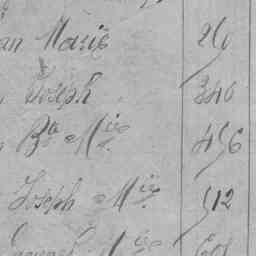 an Marie 26
Joseph 340
Bte Mie 456
Joseph Mie 512